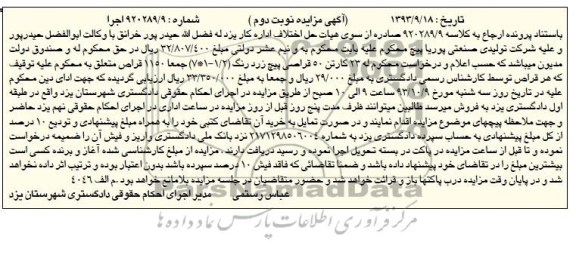 تاریخ : ۱۳۹۳/۹/۱۸ (آگهی مزایده نوبت دوم ) شماره : ۹۲۰۲۸۹/۹ اجرا
باستناد پرونده ارجاع به کلاسه ۹۲۰۲۸۹/۹ صادره از سوی هیات حل اختلاف اداره کار یزد له فضل الله حیدر پور خرانق با وکالت ابوالفضل حیدرپور
و علیه شرکت تولیدی صنعتی پوریا پیچ محکوم علیه باید محکوم به و نیم عشر دولتی مبلغ ۳۲/۸۰۷/۴۰۰ ریال در حق محکوم له و صندوق دولت
مدیون میباشد که حسب اعلام و درخواست محکوم له ۲۳ کارتن ۵۰ قراص پیچ زرد رنگ (۱/۲-۱*۷) جمعا ۱۱۵۰ قراص متعلق به محکوم علیه توقیف
که هر قراص توسط کارشناس رسمی دادگستری به مبلغ ۲۹/۰۰۰ ریال و جمعا به مبلغ ۳۳/۳۵۰/۰۰۰ ریال ارزیابی گردیده که جهت ادای دین محکوم
علیه در تاریخ روز سه شنبه مورخ ۹۳/۱۰/۹ ساعت ۹ الی ۱۰ صبح از طریق مزایده در اجرای احکام حقوقی دادگستری شهرستان یزد واقع در طبقه
اول دادگستری یزد به فروش میرسد طالبین میتوانند ظرف مدت پنج روز قبل از روز مزایده در ساعت اداری در اجرای احکام حقوقی نهم یزد حاضر
و جهت ملاحظه پیچهای موضوع مزایده اقدام نمایند و در صورت تمایل به خرید آن تقاضای کتبی خود را به همراه مبلغ پیشنهادی و تودیع ۱۰ درصد
از کل مبلغ پیشنهادی به حساب سپرده دادگستری یزد به شماره ۲۱۷۱۲۹۸۵۰۶۰۰۴ نزد بانک ملی دادگستری واریز و فیش آن را ضمیمه درخواست
نموده و تا قبل از ساعت مزایده در پاکت در بسته تحویل اجرا نموده و رسید دریافت دارند ، مزایده از مبلغ کارشناسی شده آغاز و برنده کسی است
بیشترین مبلغ را در تقاضای خود پیشنهاد داده باشد و ضمنا تقاضائی که فاقد فیش ۱۰ درصد سپرده باشد بدون اعتبار بوده و ترتیب اثر داده نخواهد
شد و در پایان وقت مزایده درب پاکتها باز و قرائت خواهد شد و حضور متقاضیان در جلسه مزایده بلامانع خواهد بود . م الف ۴۰۴۶
عباس رستمی مدیر اجرای احکام حقوقی دادگستری شهرستان یزد
ParsNamadData
مرکز فرآوری اطلاعات پارس نماد داده ها